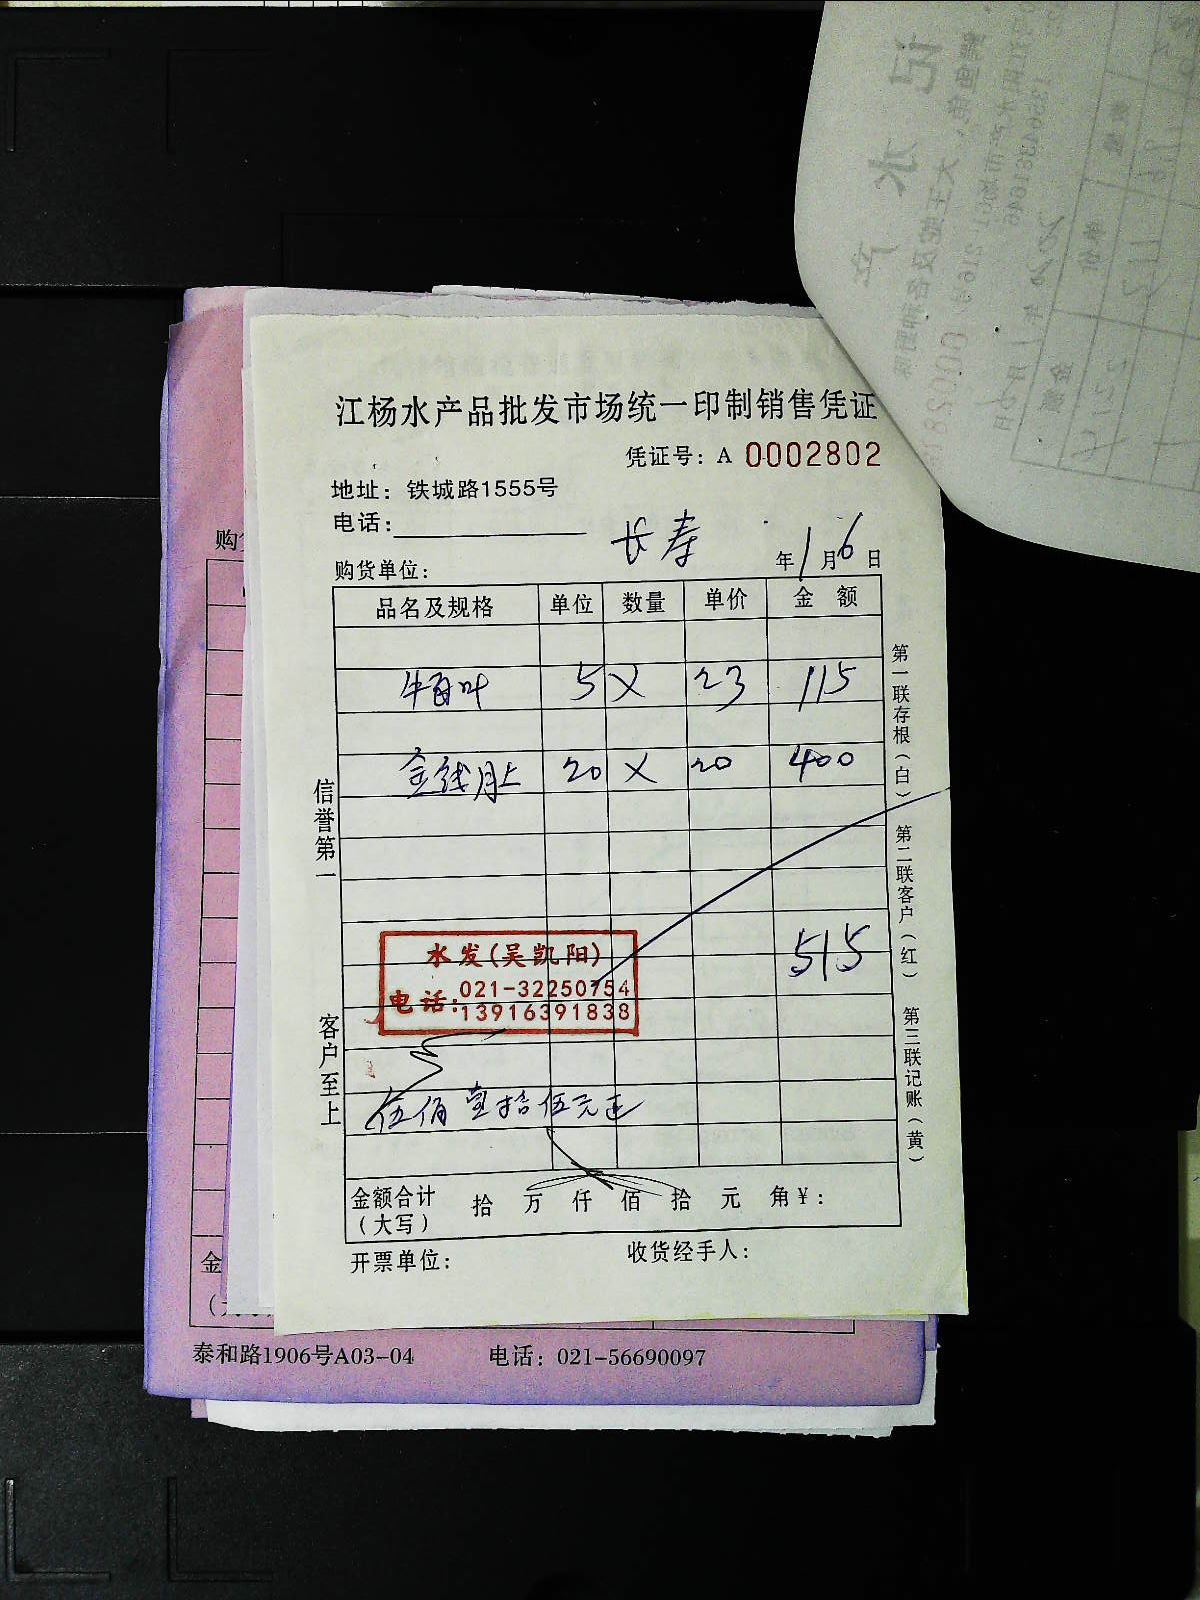 江杨水产品批发市场统一印制销售凭证
凭证号：A 0002802
地址：铁城路1555号
电话：
长寿
购货单位： 年1月6日
品名及规格 单位 数量 单价 金 额
牛百叶 5 X 23 115
金线月上 20 X 20 400
515
水发(吴凯阳)
电话：021-32250754
13916391838
伍佰壹拾伍元正
金额合计（大写） 拾 万 仟 佰 拾 元 角 ¥：
开票单位： 收货经手人：
信誉第一
客户至上
第一联存根（白）
第二联客户（红）
第三联记账（黄）
购
金
泰和路1906号A03-04 电话：021-56690097